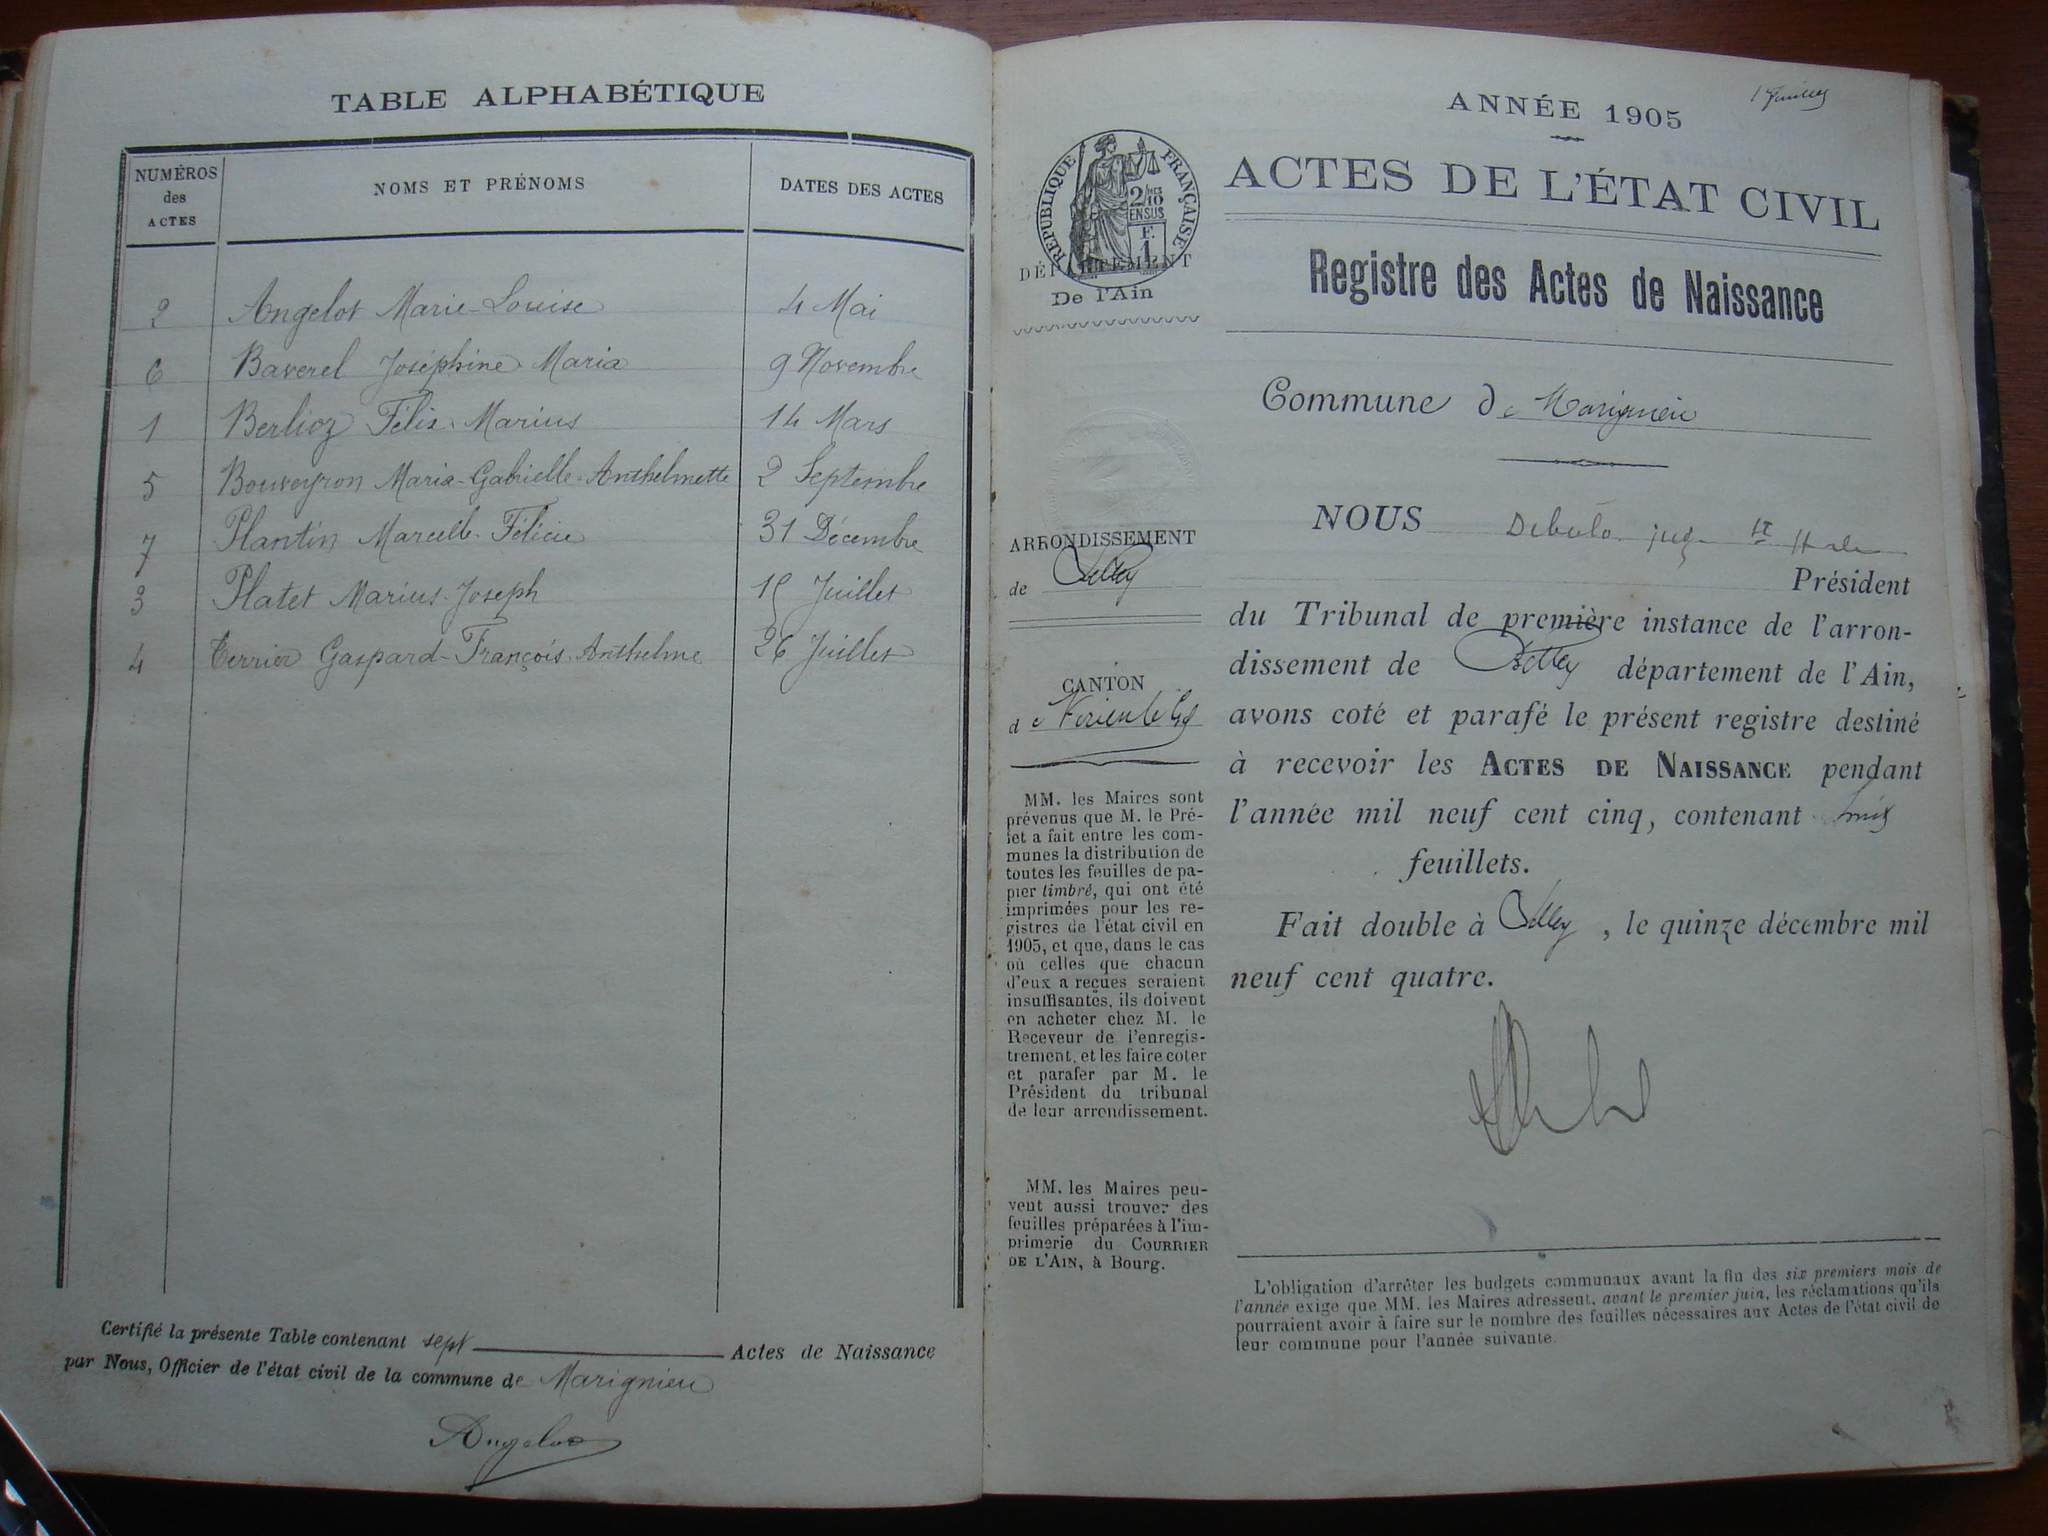 TABLE ALPHABÉTIQUE
NUMÉROS des ACTES
NOMS ET PRÉNOMS
DATES DES ACTES
2 Angelot Marie-Louise 4 Mai
6 Baverel Joséphine Maria 9 Novembre
1 Berlioz Félix Marius 14 Mars
5 Bouveyron Maria-Gabrielle-Anthelmette 2 Septembre
7 Plantin Marcelle-Félicie 31 Décembre
3 Platet Marius-Joseph 15 Juillet
4 Terrier Gaspard-François-Anthelme 26 Juillet
Certifié la présente Table contenant sept Actes de Naissance
par Nous, Officier de l'état civil de la commune de Marignieu
Angelot
1 feuillet
ANNÉE 1905
ACTES DE L'ÉTAT CIVIL
Registre des Actes de Naissance
RÉPUBLIQUE FRANÇAISE
2/10
EN SUS
F.
1
DÉPARTEMENT
De l'Ain
Commune de Marignieu
ARRONDISSEMENT
de Belley
CANTON
de Virieu le Gd
MM. les Maires sont
prévenus que M. le Pré-
fet a fait entre les com-
munes la distribution de
toutes les feuilles de pa-
pier timbré, qui ont été
imprimées pour les re-
gistres de l'état civil en
1905, et que, dans le cas
où celles que chacun
d'eux a reçues seraient
insuffisantes, ils doivent
en acheter chez M. le
Receveur de l'enregis-
trement, et les faire coter
et parafer par M. le
Président du tribunal
de leur arrondissement.
MM. les Maires peu-
vent aussi trouver des
feuilles préparées à l'im-
primerie du COURRIER
DE L'AIN, à Bourg.
NOUS juge
Président
du Tribunal de première instance de l'arron-
dissement de Belley département de l'Ain,
avons coté et parafé le présent registre destiné
à recevoir les ACTES DE NAISSANCE pendant
l'année mil neuf cent cinq, contenant huit
feuillets.
Fait double à Belley, le quinze décembre mil
neuf cent quatre.
L'obligation d'arrêter les budgets communaux avant la fin des six premiers mois de
l'année exige que MM. les Maires adressent, avant le premier juin, les réclamations qu'ils
pourraient avoir à faire sur le nombre des feuilles nécessaires aux Actes de l'état civil de
leur commune pour l'année suivante.